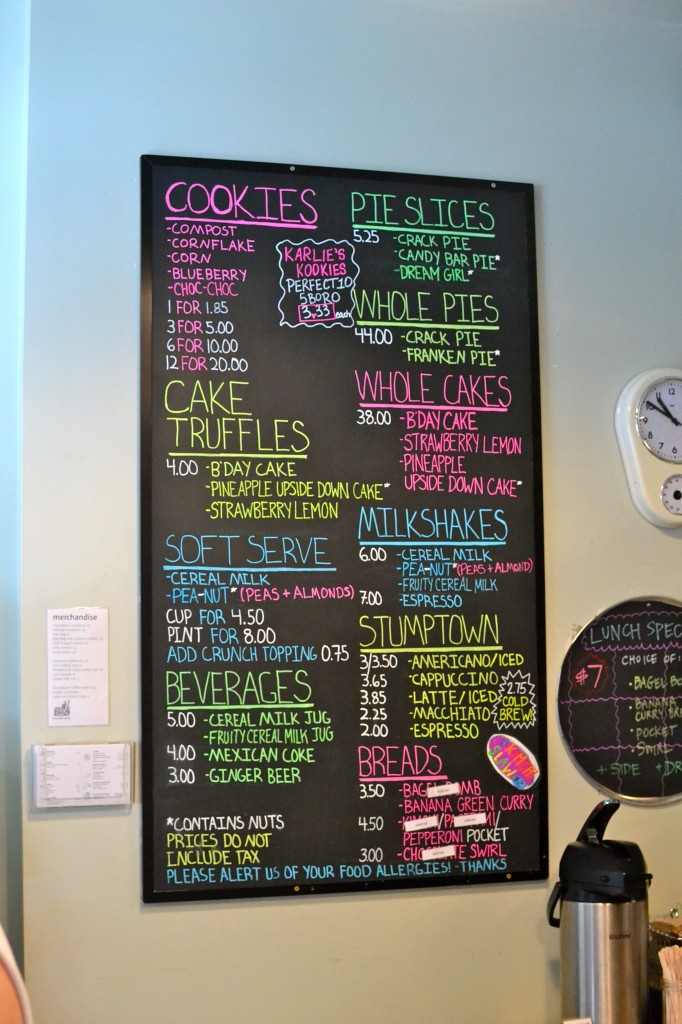 COOKIES
-COMPOST
-CORNFLAKE
-CORN
-BLUEBERRY
-CHOC-CHOC
1 FOR 1.85
3 FOR 5.00
6 FOR 10.00
12 FOR 20.00
KARLIE'S
KOOKIES
PERFECT 10
5BORO
3.33 each
CAKE
TRUFFLES
4.00 -B'DAY CAKE
-PINEAPPLE UPSIDE DOWN CAKE*
-STRAWBERRY LEMON
SOFT SERVE
-CEREAL MILK
-PEA-NUT* (PEAS + ALMONDS)
CUP FOR 4.50
PINT FOR 8.00
ADD CRUNCH TOPPING 0.75
BEVERAGES
5.00 -CEREAL MILK JUG
-FRUITY CEREAL MILK JUG
4.00 -MEXICAN COKE
3.00 -GINGER BEER
*CONTAINS NUTS
PRICES DO NOT
INCLUDE TAX
PLEASE ALERT US OF YOUR FOOD ALLERGIES! -THANKS
PIE SLICES
5.25 -CRACK PIE
-CANDY BAR PIE*
-DREAM GIRL*
WHOLE PIES
44.00 -CRACK PIE
-FRANKEN PIE*
WHOLE CAKES
38.00 -B'DAY CAKE
-STRAWBERRY LEMON
-PINEAPPLE
UPSIDE DOWN CAKE*
MILKSHAKES
6.00 -CEREAL MILK
-PEA-NUT* (PEAS + ALMOND)
-FRUITY CEREAL MILK
7.00 -ESPRESSO
STUMPTOWN
3/3.50 -AMERICANO/ICED
3.65 -CAPPUCCINO
3.85 -LATTE/ICED
2.25 -MACCHIATO
2.00 -ESPRESSO
2.75
COLD
BREW!
BREADS
3.50 -BAGEL BOMB
-BANANA GREEN CURRY
4.50
PEPPERONI POCKET
3.00 SWIRL
merchandise
LUNCH SPEC
$7
CHOICE OF:
-BAGEL BO
-BANANA
CURRY
-POCKET
-SWIRL
+ SIDE + DR
BUNN